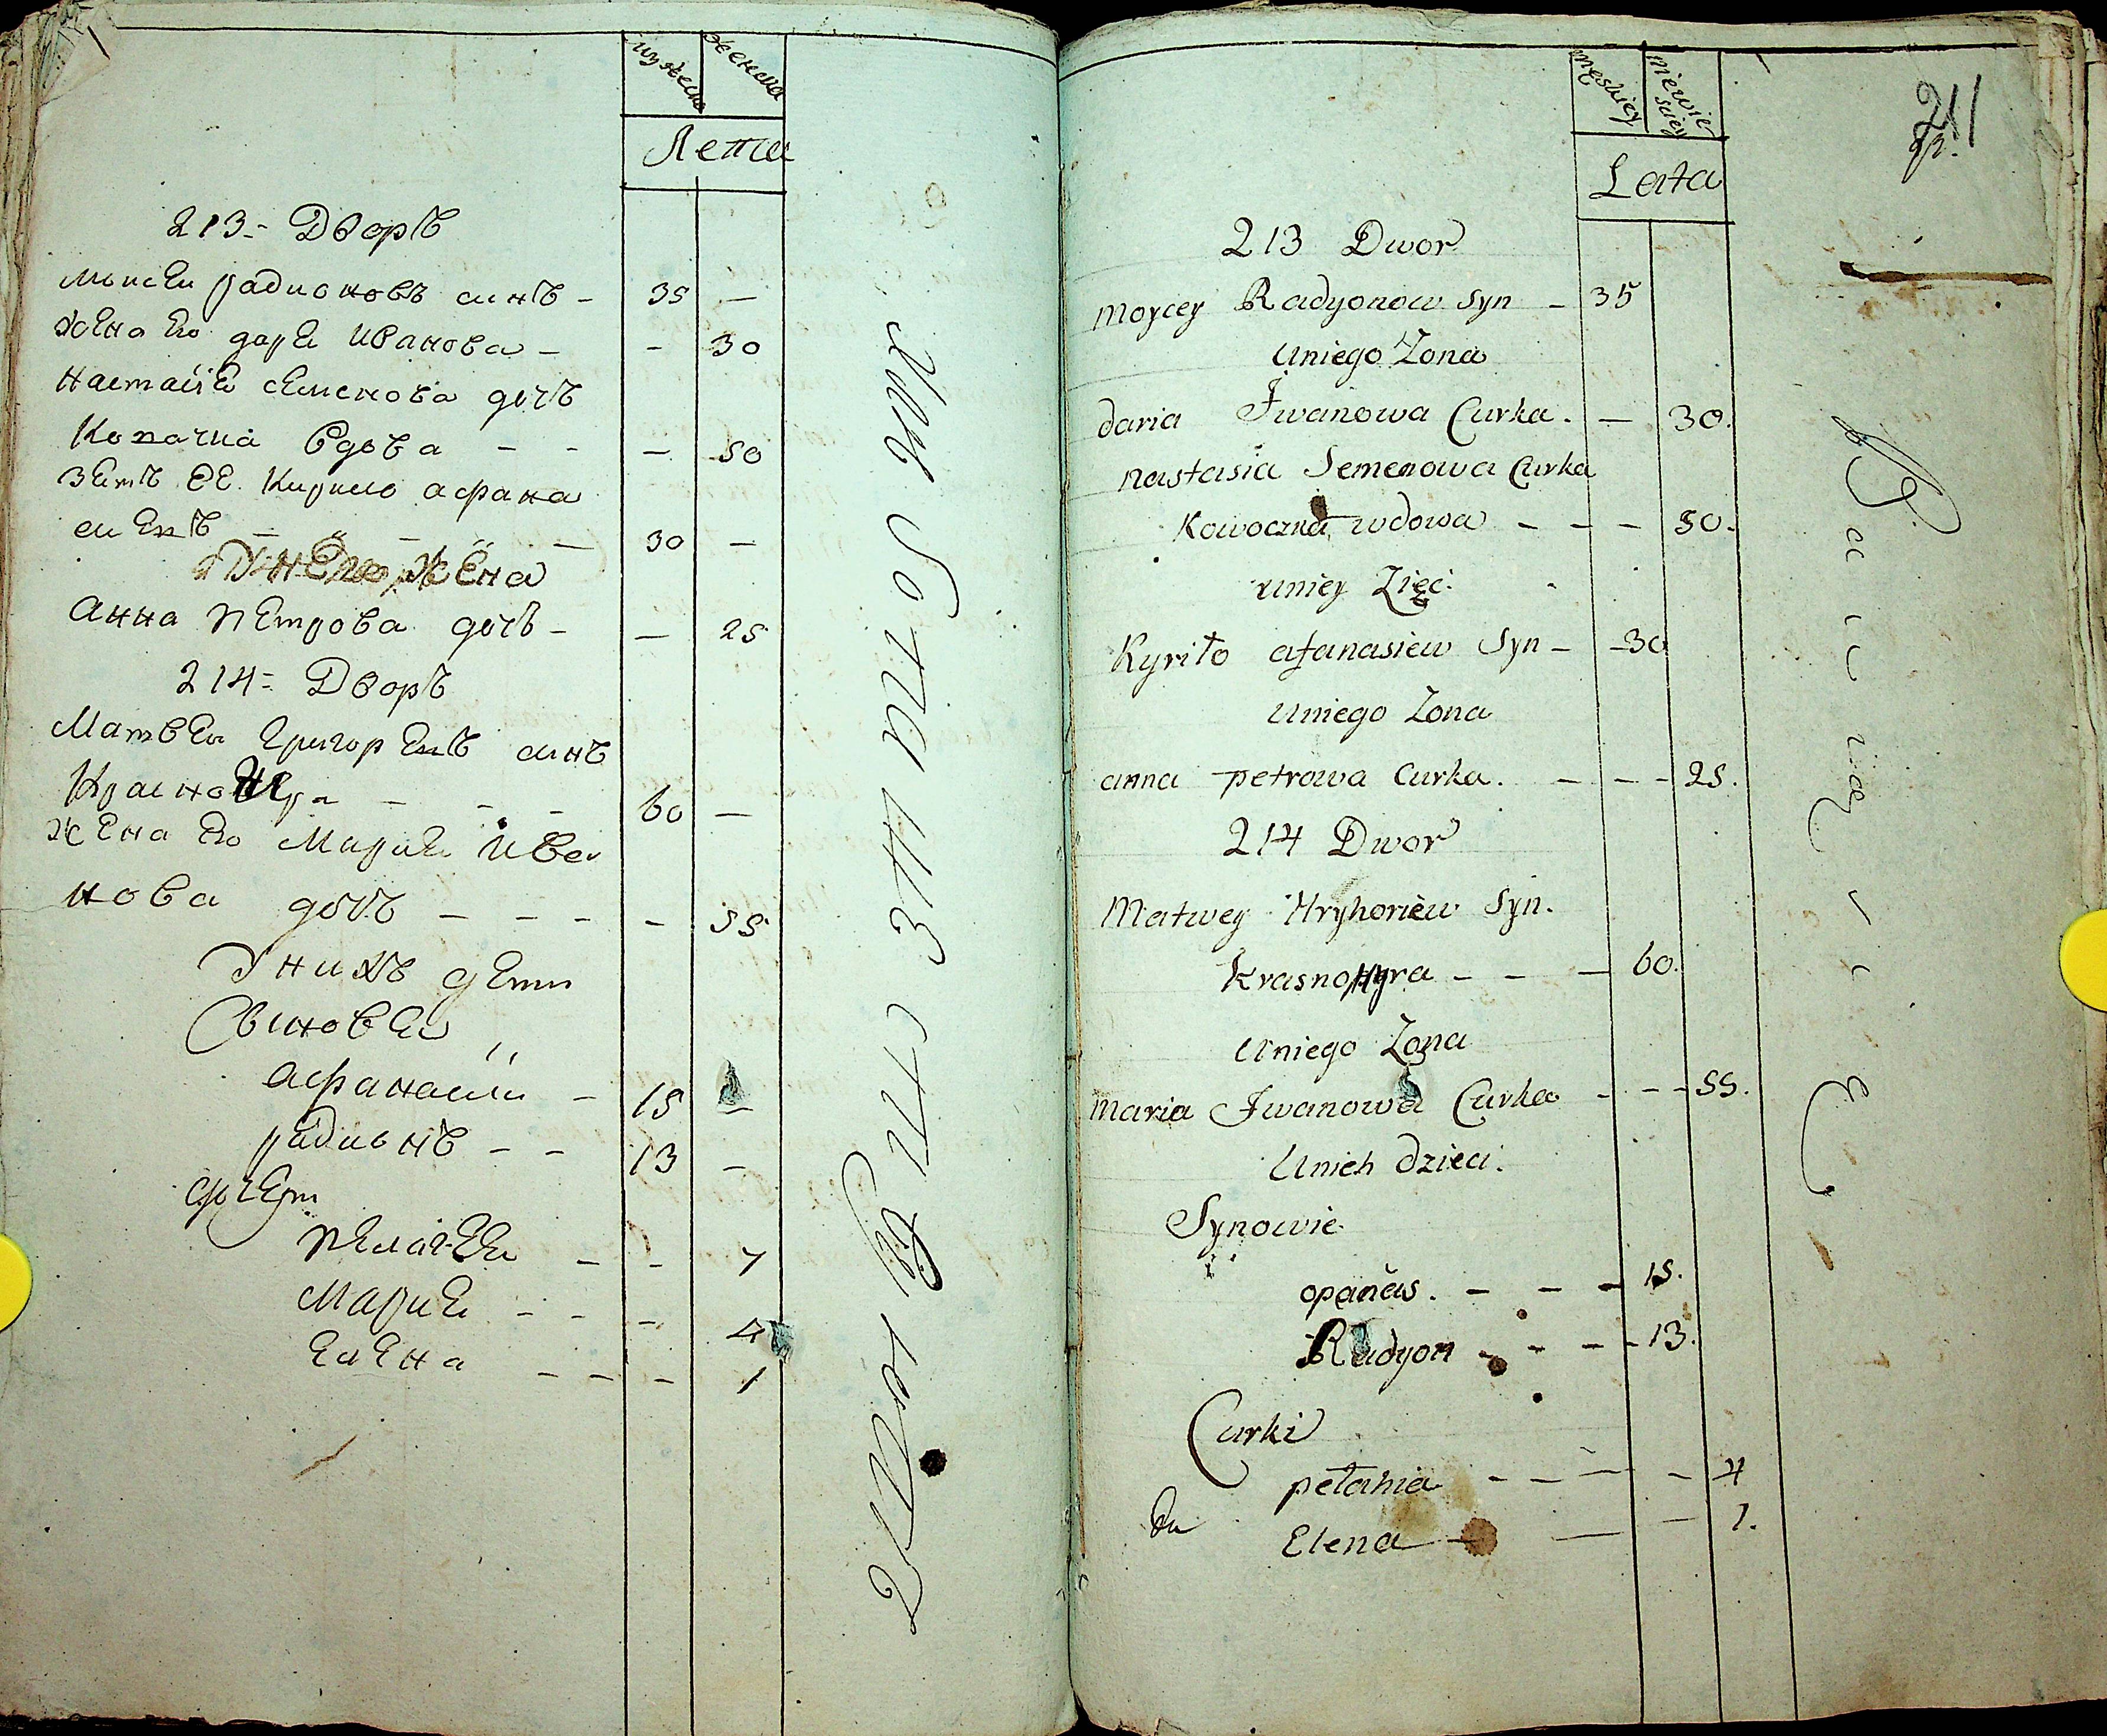 мужеска женска
Лета
213 - Дворъ
Моисеи радионовъ синъ - 35 -
Жена Ево даря Иванова - - 30
Настасія семенова дочь
Ковачка вдова - - - 50
зеть ЕЕ Кирило афана
сиевъ - - - 30 -
жена
Анна петрова дочь - - 25
214 = Дворъ
Матвеи Григориевъ синъ
60 -
жена Ево Мария Ива
нова дочь - - - - 55
У нихъ дети
Синовеи
афанасии - 15 -
радионъ - - 13 -
дочери
пелагея - - 7
Мария - - - 4
Елена - - - 1
męskiey niewie
sciey
211
Lata
213 Dwor
moycey Radyonow syn - 35
Uniego Zona
daria Jwanowa Curka. - 30.
nastasia Semenowa Curka
Kowoczna wdowa - - - 50.
uniey Zięć.
Kyriło afanasiew Syn - - 30
Uniego Zona
anna petrowa Curka. - - - 25.
214 Dwor
Matwey Hryhoriew Syn.
- - - 60.
Uniego Zona
maria Jwanowa Curka - - - 55.
Unich dzieci.
Synowie
opanas. - - - 15.
Radyon - - - - 13.
Curki
pełahia - - - - 4
Elena - - - 1.